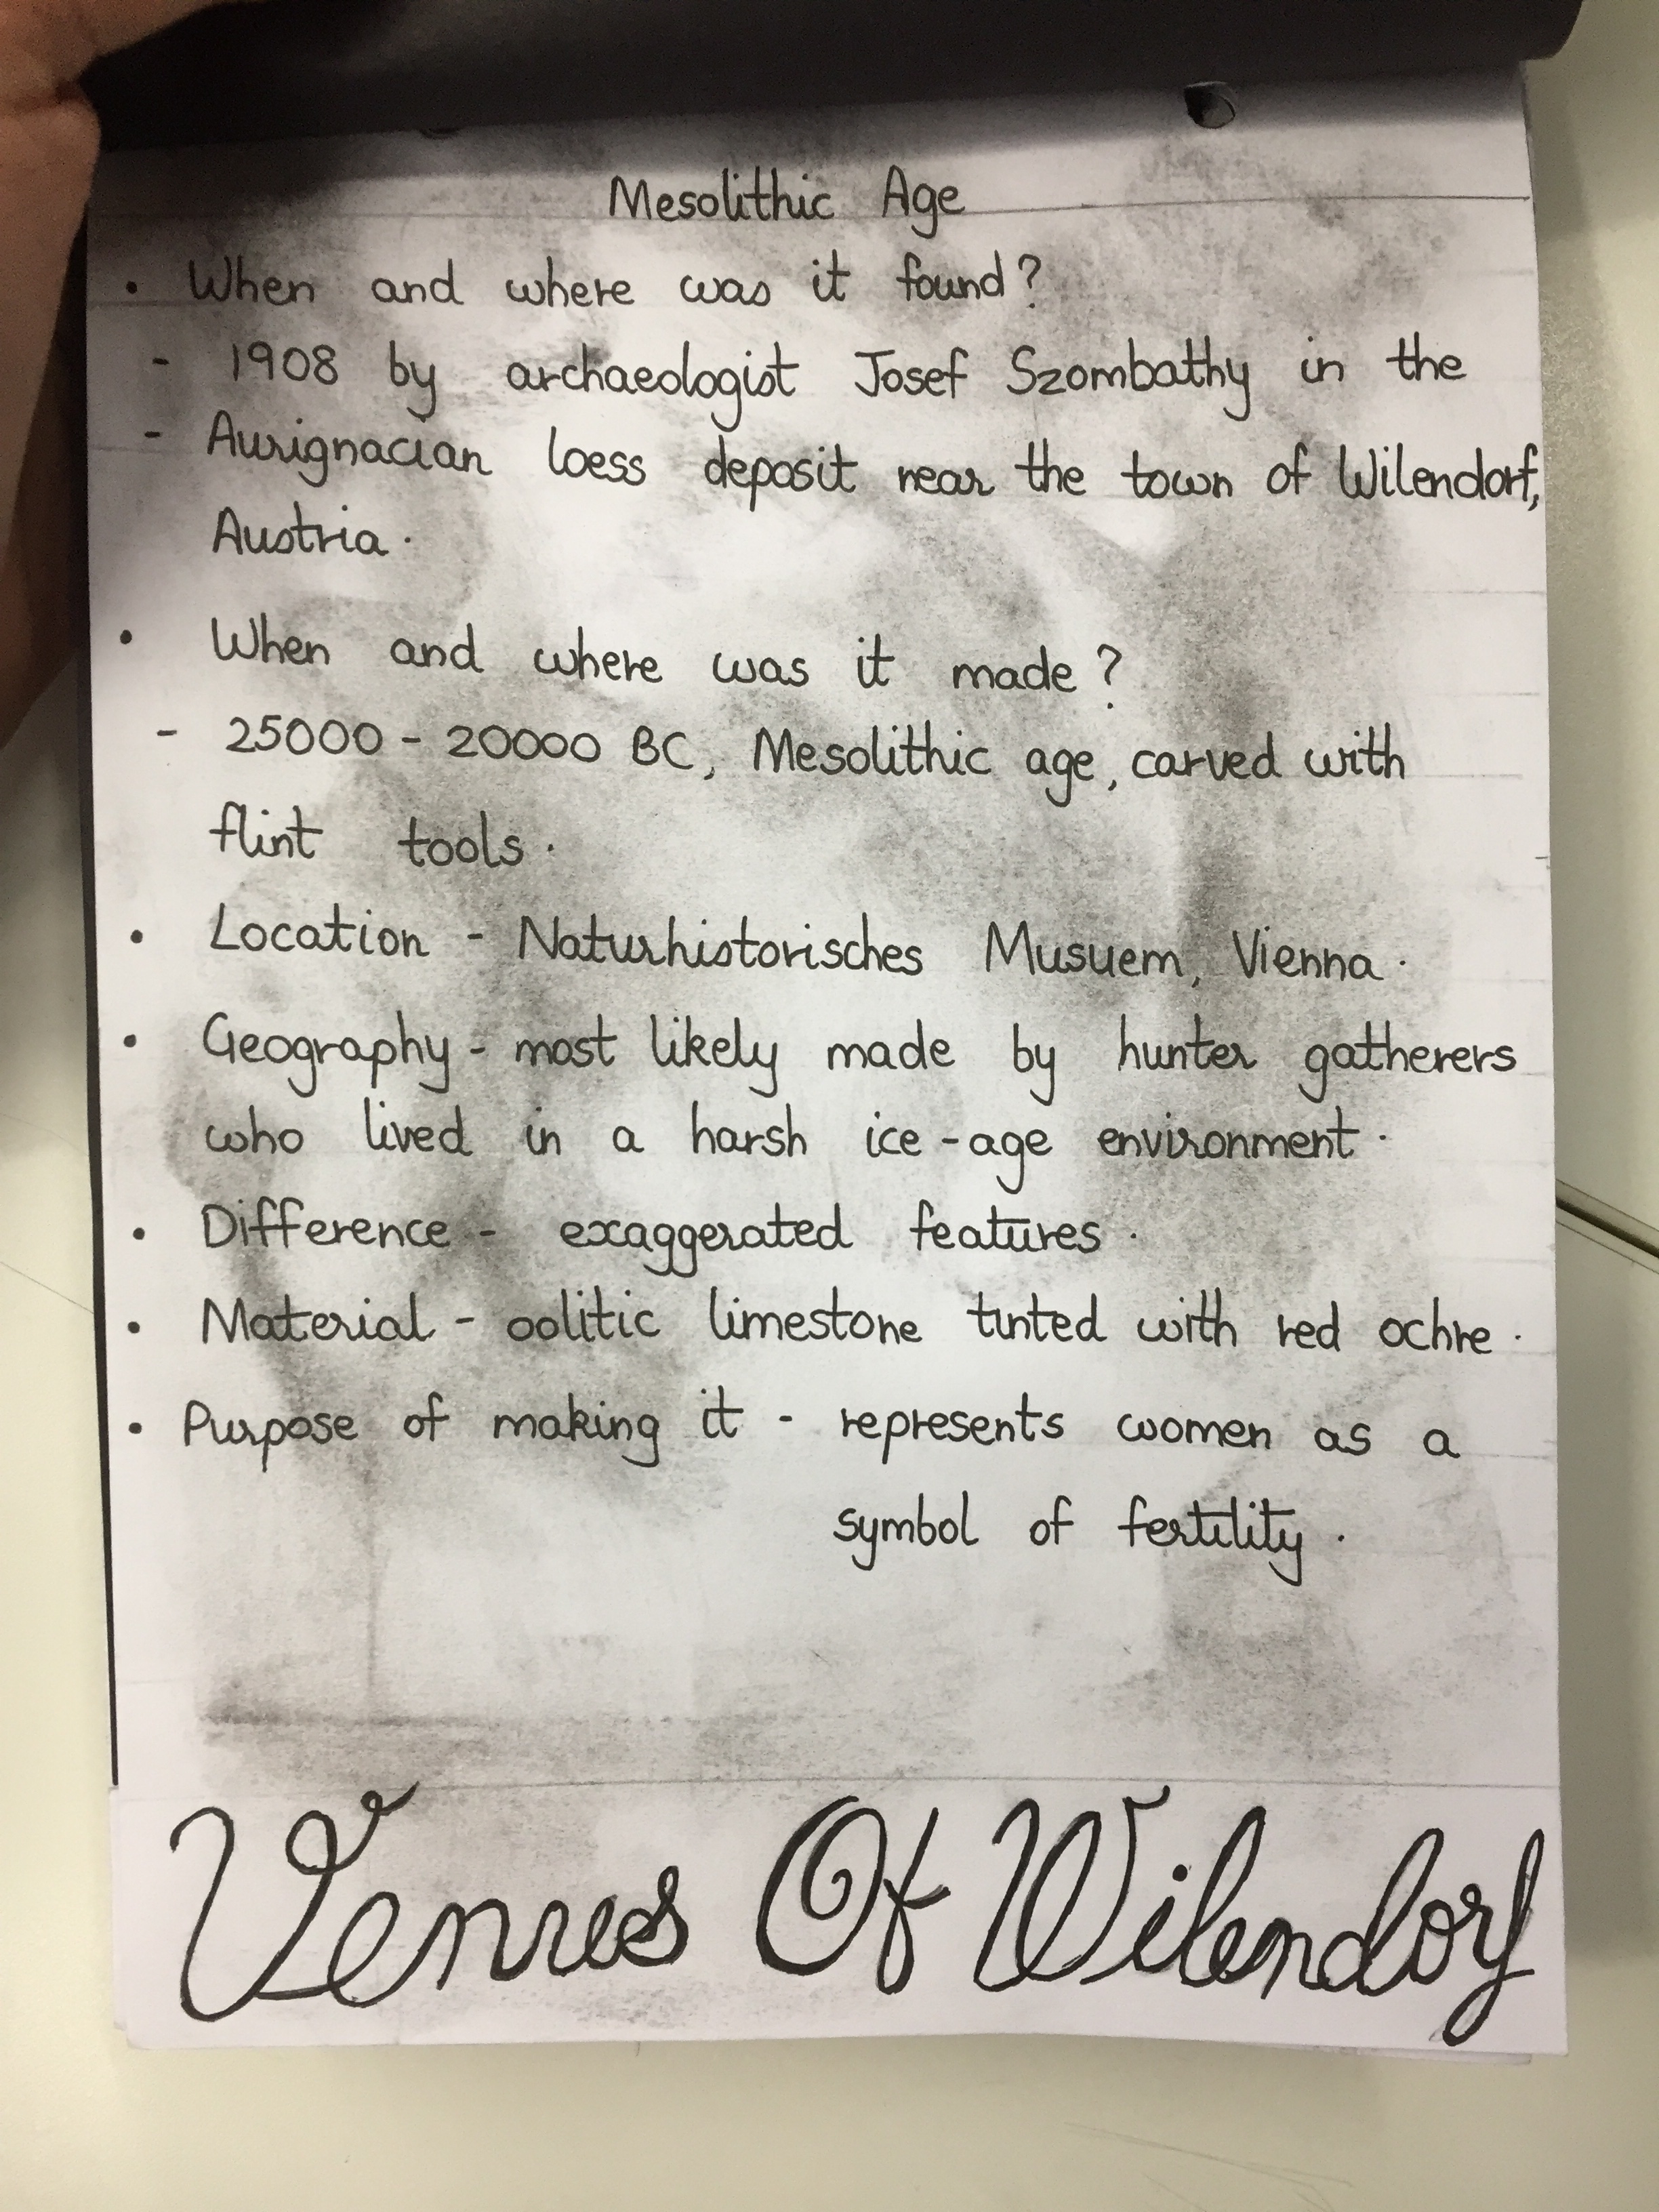 Mesolithic Age
• When and where was it found?
- 1908 by archaeologist Josef Szombathy in the
- Aurignacian loess deposit near the town of Wilendorf,
Austria.
• When and where was it made?
- 25000 - 20000 BC, Mesolithic age, carved with
flint tools.
• Location - Naturhistorisches Musuem, Vienna.
• Geography - most likely made by hunter gatherers
who lived in a harsh ice-age environment.
• Difference - exaggerated features.
• Material - oolitic limestone tinted with red ochre.
• Purpose of making it - represents women as a
symbol of fertility.
Venus Of Wilendorf